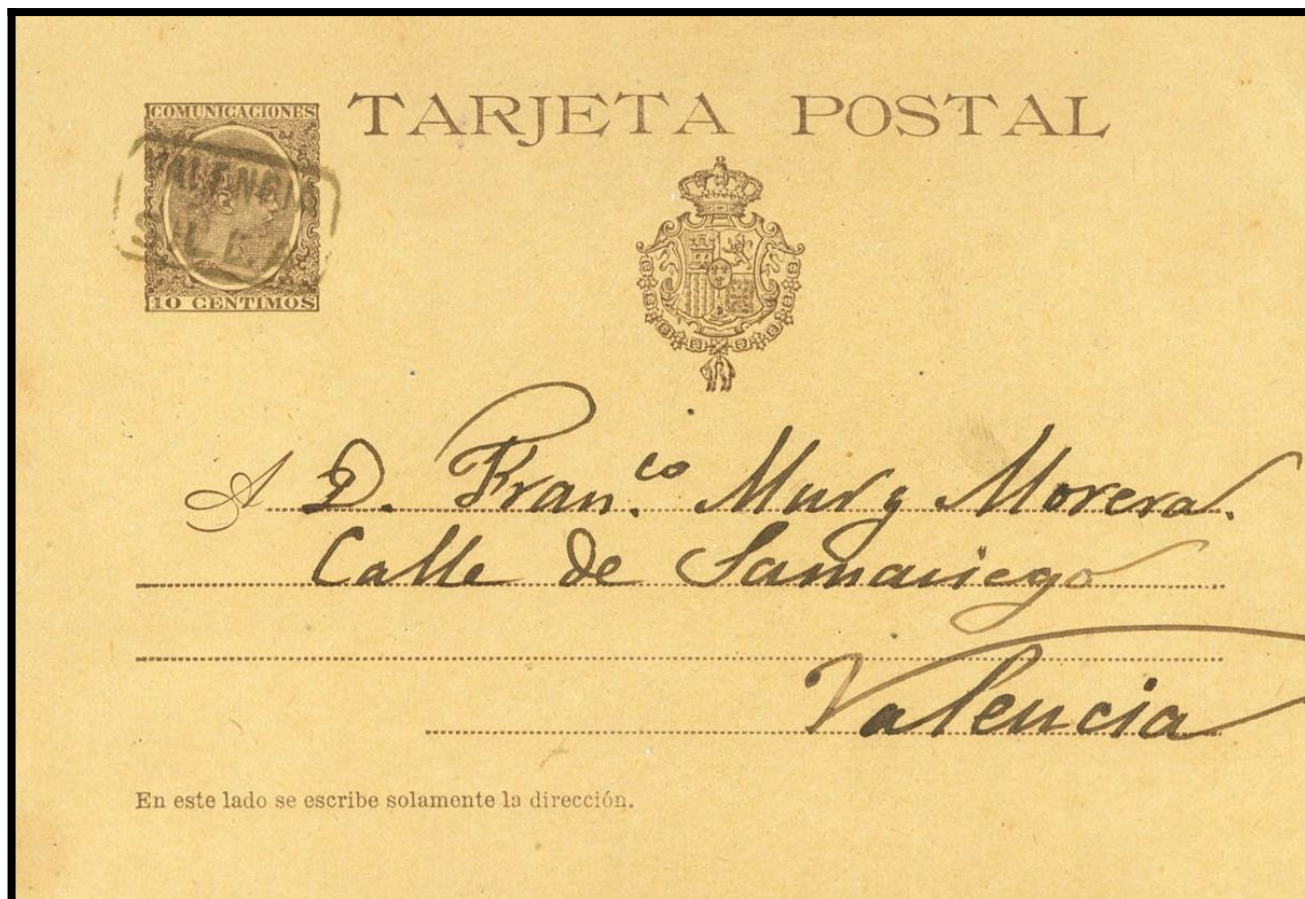 COMUNICACIONES
TARJETA POSTAL
VALENCIA
10 CENTIMOS
A D. Fran.co Mur y Morera.
Calle de Samaniego
Valencia
En este lado se escribe solamente la dirección.